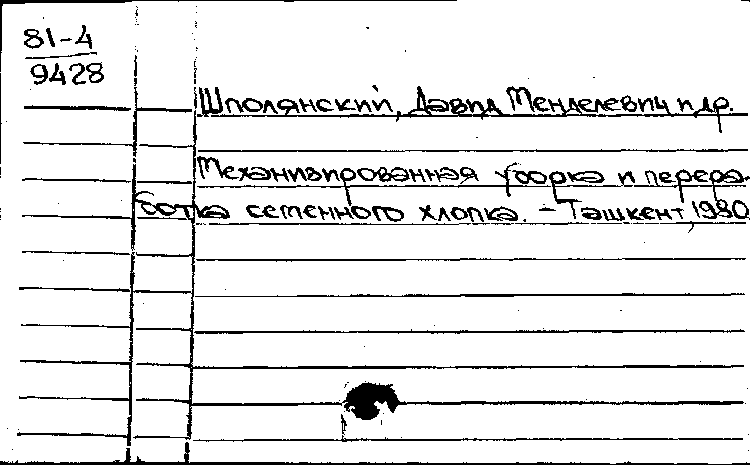 81-4
9428
Шполянский, Давид Менделевич и др.
Механизированная уборка и перера-
ботка семенного хлопка. - Ташкент, 1980